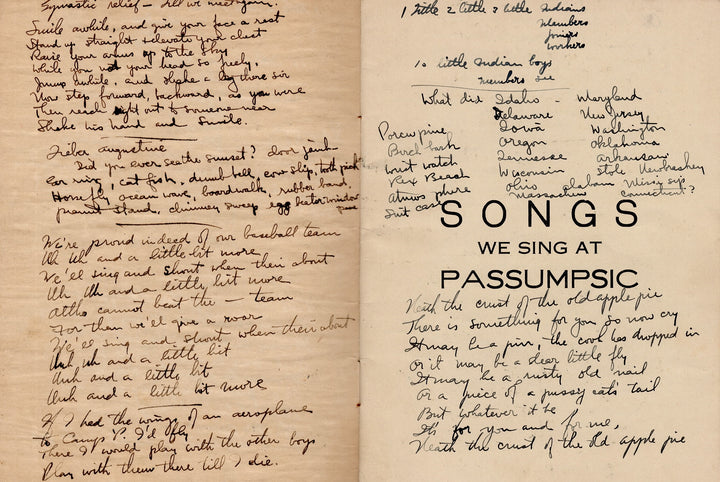 Gymnastic relief – Till we meet again.
Smile awhile, and give your face a rest
Stand up straight & elevate your chest
Raise your arms up to the sky
While you your head so freely,
Jump awhile, and shake a leg there sir
Now step forward, backward, as you were
Then reach right out to someone near
Shake his hand and Smile.
Lieber Augustine
Did you ever see the sunset? door jamb
Ear ring, cat fish, dumb bell, cow slip, tooth pick
Horse fly ocean wave, boardwalk, rubber band,
peanut stand, chimney sweep egg beater window
We're proud indeed of our baseball team
Uh Uh and a little bit more
We'll sing and shout when their about
Uh Uh and a little bit more
Altho cannot beat the — team
For them we'll give a roar
We'll sing and shout when their about
Uuh uh and a little bit
Uuh and a little bit
Uuh and a little bit more
If I had the wings of an aeroplane
to Camp P. I'd fly
There I would play with the other boys
Play with them there till I die.
1 little 2 little 3 little Indians
Members
Juniors
Workers
10 little Indian boys
Members
What did Idaho – Maryland
Delaware New Jersey
Porcupine Iowa Washington
Birch bark Oregon Oklahoma
wrist watch Tennessee Arkansaw
Rex Beach Wisconsin Style Newbraskey
Atmos phere Ohio Missi sip
Suit case Connecticut?
SONGS
WE SING AT
PASSUMPSIC
Neath the crust of the old apple pie
There is something for you so now cry
It may be a pin, the cook has dropped in
Or it may be a dear little fly
It may be a rusty old nail
Or a piece of a pussy cats' tail
But whatever it be
It's for you and for me,
Neath the crust of the old apple pie